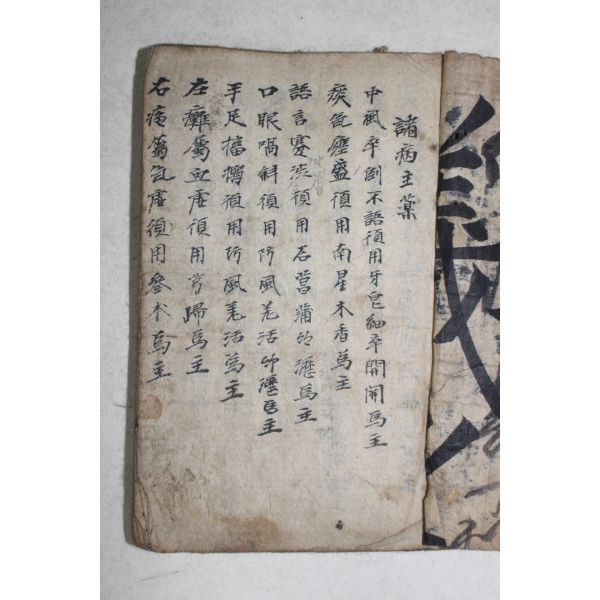 諸病主藥
中風卒倒不語須用牙皂細辛開關爲主
痰氣壅盛須用南星木香爲主
語言蹇澁須用石菖蒲竹瀝爲主
口眼喎斜須用防風羌活竹瀝爲主
手足搐搦須用防風羌活爲主
左癱屬血虛須用芎歸爲主
右痪屬氣虛須用參朮爲主